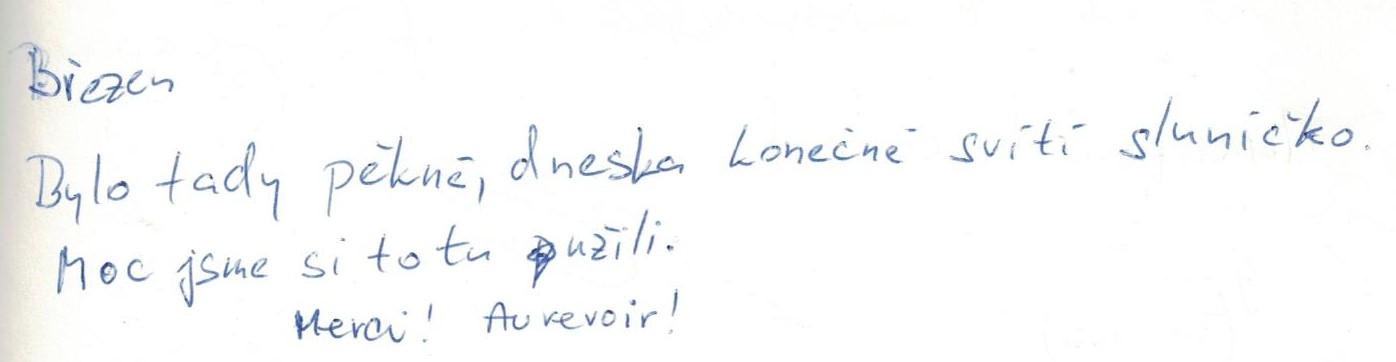 Březen
Bylo tady pěkně, dneska konečně svítí sluníčko.
Moc jsme si to tu užili.
Merci! Au revoir!